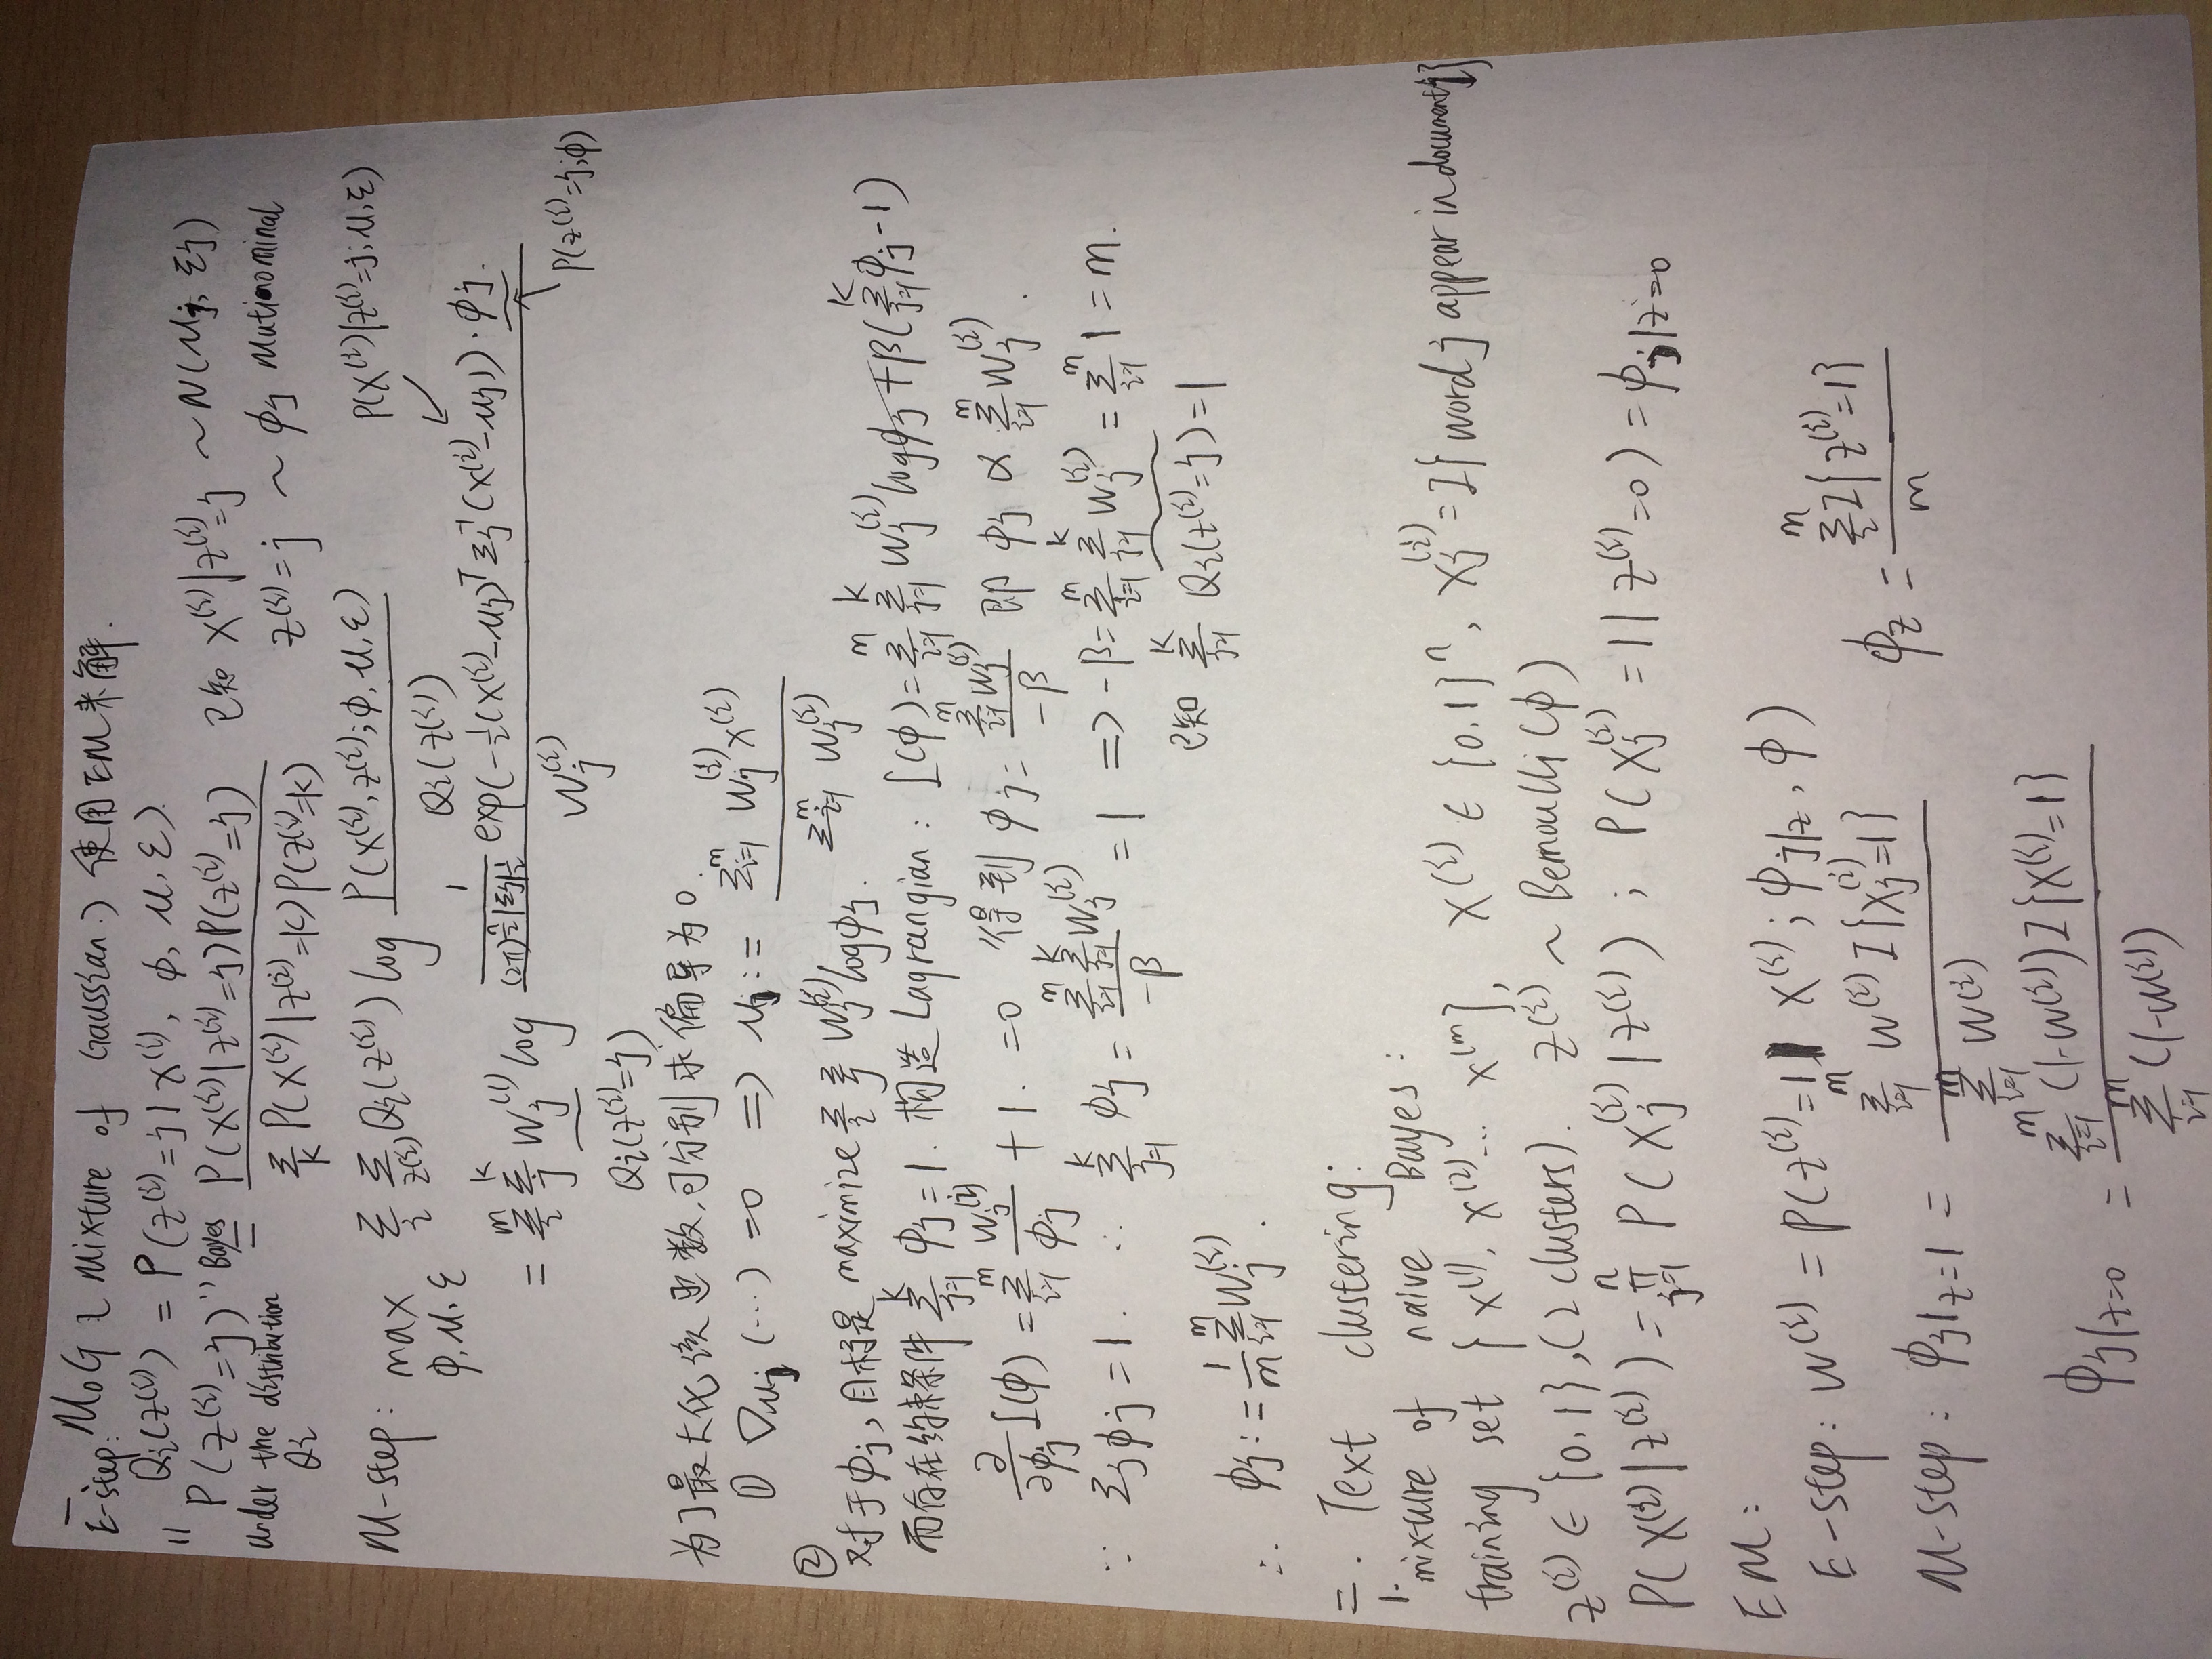 一 MoG (Mixture of Gaussian.) 使用EM来解.
E-step:
Qi(z^(i)) = P(z^(i)=j | x^(i), φ, μ, Σ).
"P(z^(i)=j)" Bayes = P(x^(i)|z^(i)=j)P(z^(i)=j) / Σ_k P(x^(i)|z^(i)=k)P(z^(i)=k) 已知 x^(i)|z^(i)=j ~ N(μj, Σj)
under the distribution Qi
z^(i)=j ~ φj Mutinominal
M-step: max_{φ,μ,Σ} Σ_i Σ_{z^(i)} Qi(z^(i)) log P(x^(i), z^(i); φ, μ, Σ) / Qi(z^(i)) P(x^(i)|z^(i)=j; μ, Σ)
= Σ_i^m Σ_j^k Wj^(i) log (1/((2π)^{n/2}|Σj|^{1/2}) exp(-1/2(x^(i)-μj)^T Σj^{-1}(x^(i)-μj))·φj) / Wj^(i)
Qi(z^(i)=j) P(z^(i)=j;φ)
为了最大化该函数,可分别求偏导为0.
① ∇μj(...) = 0 => μj := Σ_{i=1}^m Wj^(i) x^(i) / Σ_{i=1}^m Wj^(i)
② 对于φj, 目标是 maximize Σ_i Σ_j Wj^(i) logφj.
而存在约束条件 Σ_{j=1}^k φj = 1. 构造 Lagrangian: L(φ) = Σ_{i=1}^m Σ_{j=1}^k Wj^(i) logφj + β(Σ_{j=1}^k φj - 1)
∂/∂φj L(φ) = Σ_{i=1}^m Wj^(i)/φj + 1. = 0 得到 φj = Σ_{i=1}^m Wj^(i) / -β 即 φj ∝ Σ_{i=1}^m Wj^(i).
∵ Σj φj = 1. ∴ Σ_{j=1}^k φj = Σ_{i=1}^m Σ_{j=1}^k Wj^(i) / -β = 1 => -β = Σ_{i=1}^m Σ_{j=1}^k Wj^(i) = Σ_{i=1}^m 1 = m.
已知 Σ_{j=1}^k Qi(z^(i)=j) = 1
∴ φj := 1/m Σ_{i=1}^m Wj^(i).
二. Text clustering:
1. mixture of naive Bayes:
training set {x^(1), x^(2)... x^(m)}, x^(i) ∈ {0,1}^n, xj^(i) = I{word j appear in document i}
z^(i) ∈ {0,1}, (2 clusters). z^(i) ~ Bernoulli(φ)
P(x^(i)|z^(i)) = Π_{j=1}^n P(xj^(i)|z^(i)); P(xj^(i)=1|z^(i)=0) = φ_{j|z=0}
EM:
E-step: W^(i) = P(z^(i)=1 | x^(i); φ_{j|z}, φ)
M-step: φ_{j|z=1} = Σ_{i=1}^m W^(i) I{xj^(i)=1} / Σ_{i=1}^m W^(i) φz = Σ_i^m I{z^(i)=1} / m
φ_{j|z=0} = Σ_{i=1}^m (1-W^(i)) I{x^(i)=1} / Σ_{i=1}^m (1-W^(i))